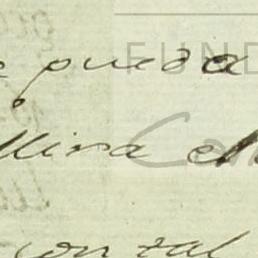 pueda
FUND
Mira el
con tal